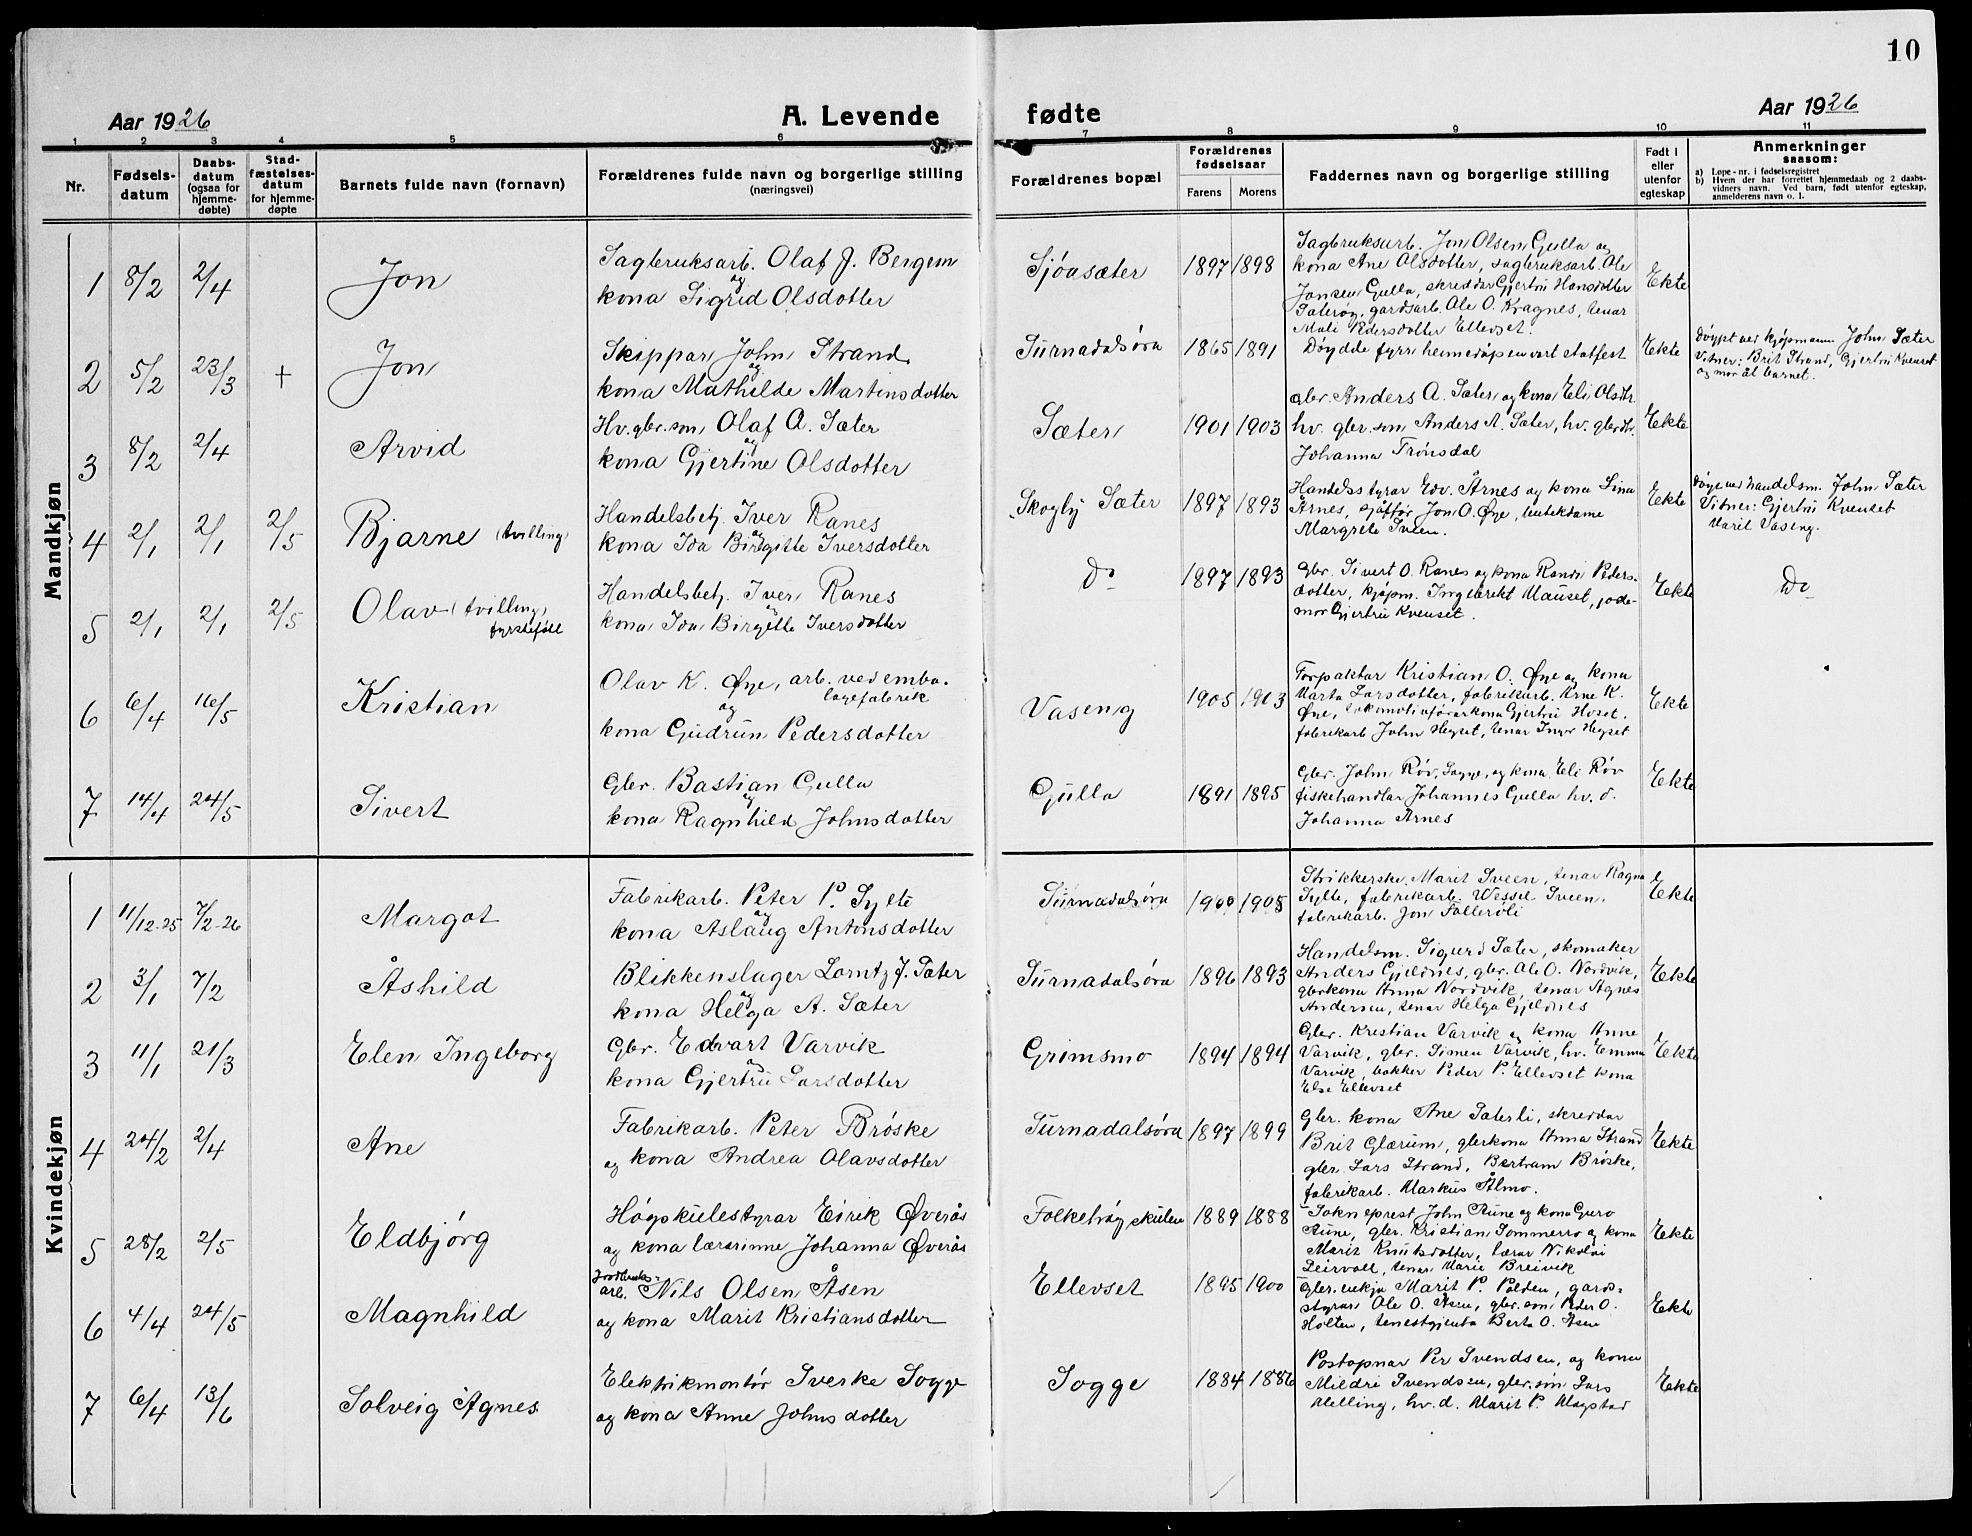 10
Aar 1926 A. Levende fødte Aar 1926
1 2 3 4 5 6 7 8 9 10 11
Nr. Fødselsdatum Daabsdatum (ogsaa for hjemmedøbte) Stadfæstelsesdatum for hjemmedøpte Barnets fulde navn (fornavn) Forældrenes fulde navn og borgerlige stilling (næringsvei) Forældrenes bopæl Forældrenes fødselsaar Farens Morens Faddernes navn og borgerlige stilling Født i eller utenfor egteskap Anmerkninger saasom:
a) Løpe-nr. i fødselsregistret
b) Hvem der har forrettet hjemmedaab og 2 daabsvidners navn. Ved barn, født utenfor egteskap, anmelderens navn o. l.
Mandkjøn
1 8/2 2/4 Jon Sagbruksarb. Olaf J. Bergem og
kona Sigrid Olsdotter
Sjøasæter 1897 1898 Sagbruksarb. Jon Olsen Gulla og
kona Ane Olsdotter, sagbruksarb. Ole
Jonsen Gulla, skreddar Gjertru Hansdotter
Saterøy, gardsarb. Ole O. Kragnes, tenar
Mali Pedersdotter Ellevset.
Ekte
2 5/2 23/3 + Jon Skippar John Strand og
kona Mathilde Martinsdotter
Surnadalsøra 1865 1891 Døydde fyrr heimedåpen vart statfest Ekte
Døypt ved kjøpmann John Sæter
Vitner: Brit Strand, Gjertru Kvenset
og mor åt barnet.
3 8/2 2/4 Arvid Hv. gbr. son Olaf A. Sæter og
kona Gjertine Olsdotter
Sæter 1901 1903 gbr. Anders A. Sæter og kona Eli Olsdtr.
hv. gbr. son Anders A. Sæter, hv. gbrdtr.
Johanna Trønsdal
Ekte
4 2/1 2/1 2/5 Bjarne (tvilling) Handelsbetj. Iver Ranes og
kona Ida Birgitte Iversdotter
Skogly Sæter 1897 1893 Handelsstyrar Edv. Årnes og kona Lina
Årnes, sjåfør Jon O. Øye, butikdame
Margrete Sveen.
Ekte
Døypt ved handelsm. John Sæter
Vitner: Gjertru Kvenset
Marit Vaseng.
5 2/1 2/1 2/5 Olav (tvilling,
fyrstefødt
Handelsbetj. Iver Ranes og
kona Ida Birgitte Iversdotter
Do 1897 1893 Gbr. Sivert O. Ranes og kona Randi Pedersdotter, kjøpm. Ingebrekt Mauset, jordmor Gjertru Kvenset.
Ekte Do
6 6/4 16/5 Kristian Olav K. Øye, arb. ved embalagefabrik
og
kona Gudrun Pedersdotter
Vaseng 1905 1903 Forpaktar Kristian O. Øye og kona
Marta Larsdotter, fabrikarb. Arne K.
Øye, lokomotivførarkona Gjertru Hoset,
fabrikarb John Heyset, tenar Inger Heyset
Ekte
7 14/4 24/5 Sivert Gbr. Bastian Gulla og
kona Ragnhild Johnsdotter
Gulla 1891 1895 Gbr. John Røv, Sogge, og kona Eli Røv
fiskehandlar Johannes Gulla hv. d.
Johanna Årnes
Ekte
Kvindekjøn
1 11/12-25 7/2-26 Margot Fabrikarb. Peter P. Sylte og
kona Aslaug Antonsdotter
Surnadalsøra 1900 1905 Strikkerske Marit Sveen, tenar Ragna
Sylte, fabrikarb. Wessel Sveen,
fabrikarb. Jon Sollerøli
Ekte
2 3/1 7/2 Åshild Blikkenslager Lorntz J. Sæter og
kona Helga A. Sæter
Surnadalsøra 1896 1893 Handelsm. Sigurd Sæter, skomaker
Anders Gjeldnes, gbr. Ole O. Nordvik,
gbrkona Anna Nordvik, tenar Agnes
Andersen, tenar Helga Gjeldnes
Ekte
3 11/1 21/3 Elen Ingeborg Gbr. Edvart Varvik og
kona Gjertru Larsdotter
Grimsmo 1894 1894 Gbr. Kristian Varvik og kona Anne
Varvik, gbr. Simen Varvik, hv. Emma
Varvik, bakker Peder P. Ellevset kona
Else Ellevset
Ekte
4 24/2 2/4 Ane Fabrikarb. Peter Brøske
og kona Andrea Olavsdotter
Surnadalsøra 1897 1899 Gbr. kona Ane Sæterli, skreddar
Brit Glærum, gbrkona Anna Strand
gbr. Lars Strand, Bertram Brøske,
fabrikarb. Markus Ålmo.
Ekte
5 28/2 2/5 Eldbjørg Høgskulestyrar Eirik Øverås
og kona lærarinne Johanna Øverås
Folkehøgskulen 1889 1888 Sokneprest John Aune og kona Guro
Aune, gbr. Kristian Sommerro og kona
Marit Knutsdotter, lærar Nikolai
Leirvoll, tenar Marie Breivik
Ekte
6 4/4 24/5 Magnhild Jordbruksarb. Nils Olsen Åsen
og kona Marit Kristiansdotter
Ellevset 1895 1900 Gbr. enkja Marit P. Polden, gardsstyrar Ole O. Åsen, gbr. son Peder O.
Holten, tenestgjenta Berta O. Åsen
Ekte
7 6/4 13/6 Solveig Agnes Elektrikmontør Sverke Sogge
og kona Anne Johnsdotter
Sogge 1884 1886 Postopnar Per Svendsen, og kona
Mildri Svendsen, gbr. son Lars
Melling, hv. d. Marit P. Magstad
Ekte